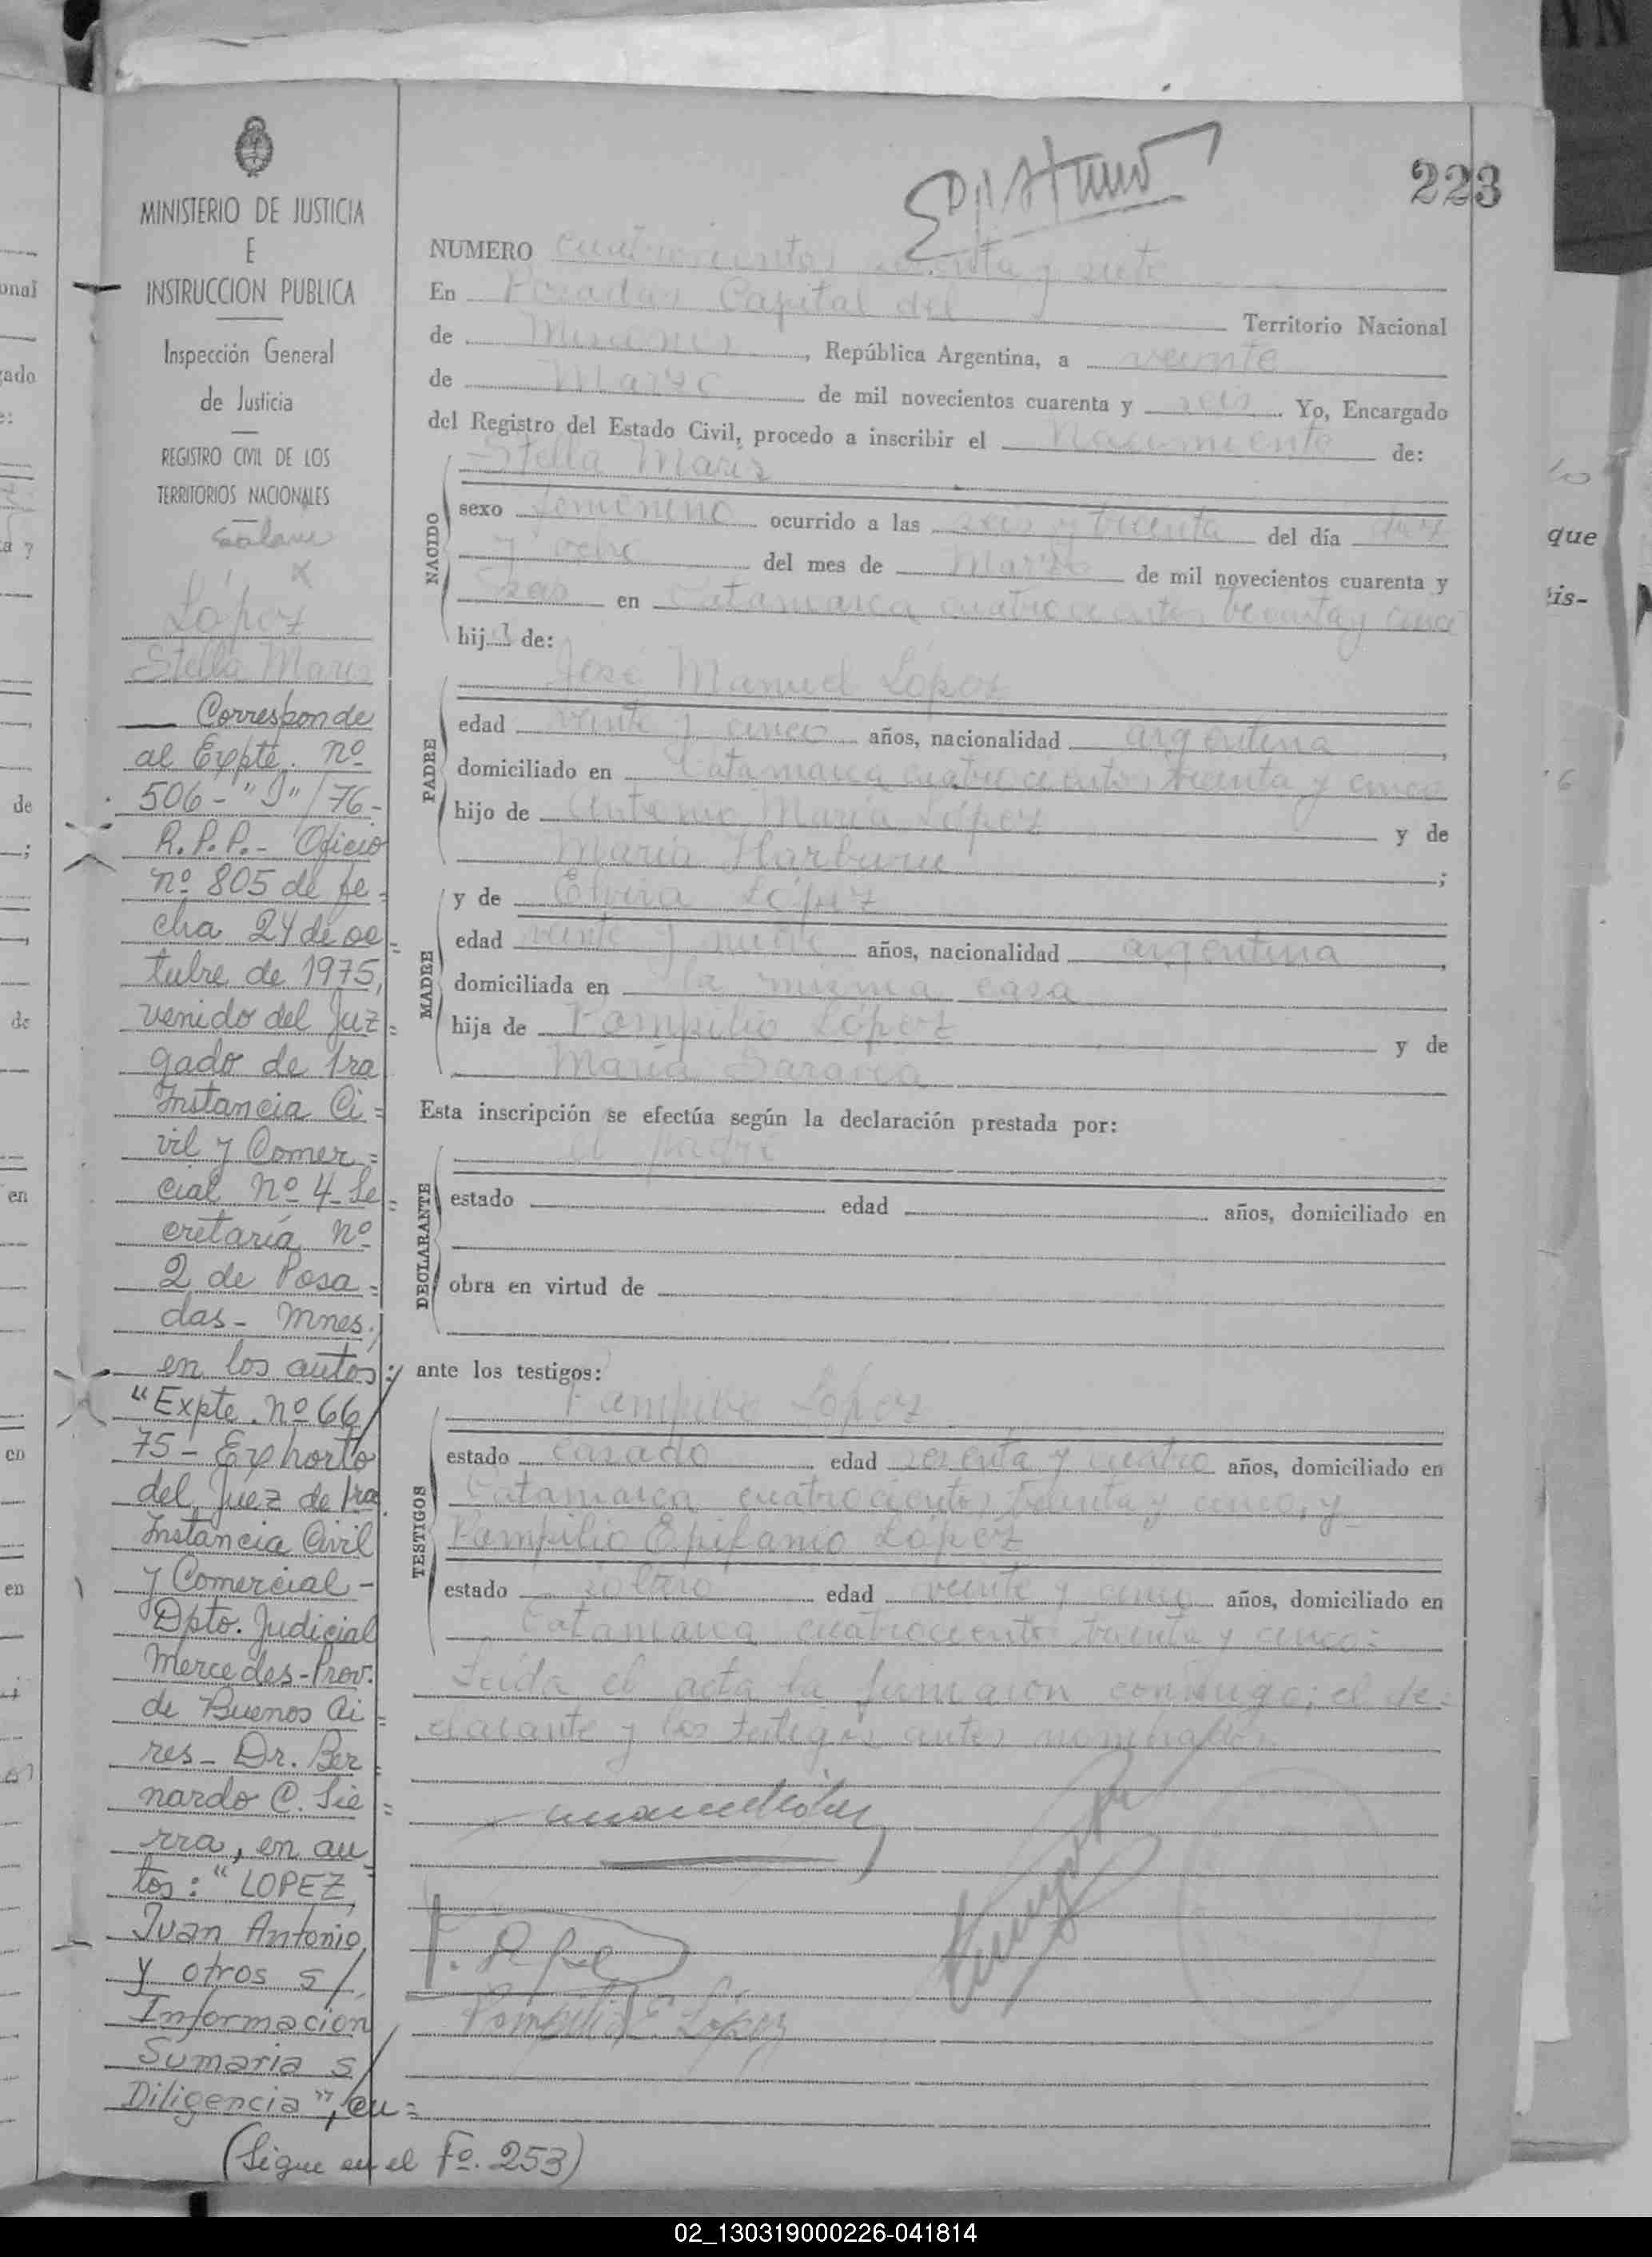 223
MINISTERIO DE JUSTICIA
E
INSTRUCCION PUBLICA
Inspección General
de Justicia
REGISTRO CIVIL DE LOS
TERRITORIOS NACIONALES
López
Stella Maris
Corresponde
al Expte. nº
506-"J"/76-
R.P.P.- Oficio
nº 805 de fe=
cha 24 de oc=
tubre de 1975,
venido del Juz=
gado de 1ra
Instancia Ci=
vil y Comer=
cial nº 4-Se=
cretaría nº
2 de Posa=
das- Mnes.,
en los autos:
"Expte. nº 66/
75- Exhorto
del Juez de 1ra.
Instancia Civil
y Comercial-
Dpto. Judicial
Mercedes-Prov.
de Buenos Ai=
res- Dr. Ber=
nardo C. Sie=
rra, en au=
tos: "LOPEZ
Juan Antonio
y otros s/
Información
Sumaria s/
Diligencia", cu=
(Sigue en el Fº. 253)
NUMERO cuatrocientos y siete
En Posadas Capital del Territorio Nacional
de Misiones, República Argentina, a veinte
de Marzo de mil novecientos cuarenta y seis. Yo, Encargado
del Registro del Estado Civil, procedo a inscribir el Nacimiento de:
NACIDO
Stella Maris
sexo femenino ocurrido a las seis y treinta del día diez
y ocho del mes de Marzo de mil novecientos cuarenta y
seis en Catamarca cuatrocientos treinta y cinco
hija de:
PADRE
José Manuel López
edad veinte y cinco años, nacionalidad argentina,
domiciliado en Catamarca cuatrocientos treinta y cinco
hijo de Antonio María López y de
María ;
MADRE
y de Elvira López
edad veinte y nueve años, nacionalidad argentina,
domiciliada en la misma casa
hija de Pompilio López y de
María Saravia
Esta inscripción se efectúa según la declaración prestada por:
DECLARANTE
el padre
estado edad años, domiciliado en
obra en virtud de
ante los testigos:
TESTIGOS
Pompilio López
estado casado edad sesenta y cuatro años, domiciliado en
Catamarca cuatrocientos treinta y cinco, y
Pompilio Epifanio López
estado soltero edad veinte y cinco años, domiciliado en
Catamarca cuatrocientos treinta y cinco=
Leída el acta la firmaron conmigo; el de=
clarante y los testigos antes nombrados.
Pompilio E. López
que
is-
onal
de
de
en
en
en
02_130319000226-041814